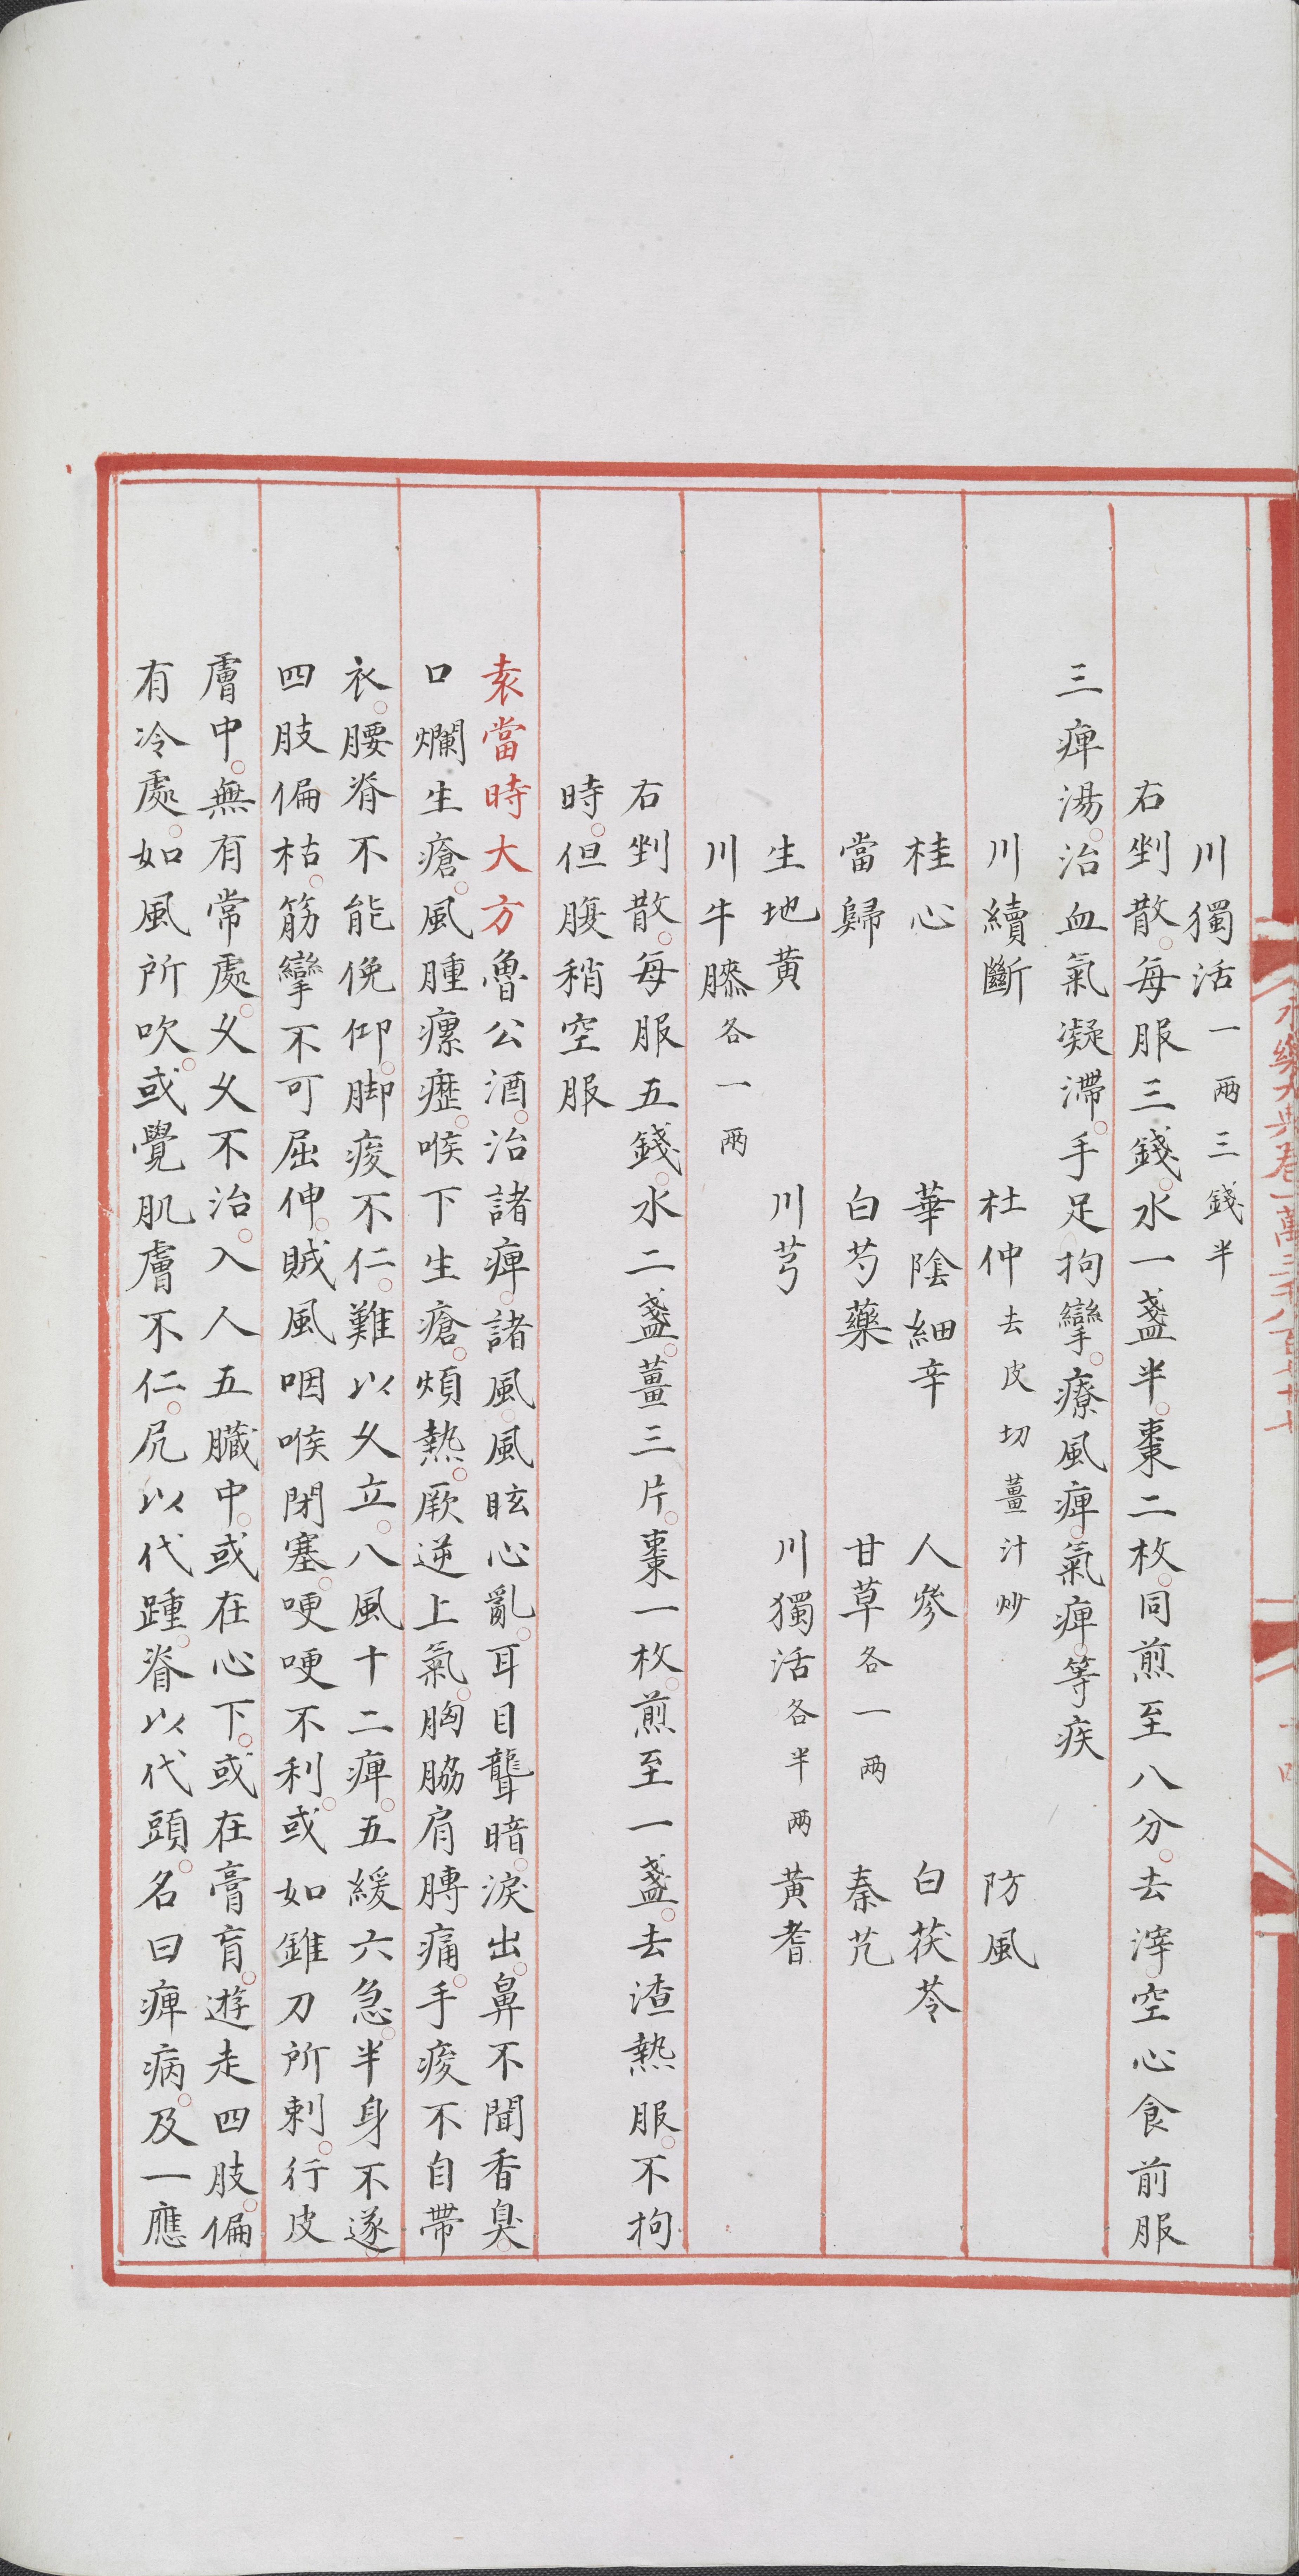 川獨活一两三錢半
右剉散。每服三錢。水一盞半。棗二枚。同煎至八分。去滓。空心食前服
三痺湯。治血氣凝滯。手足拘攣。療風痺。氣痺。等疾
川續斷 杜仲去皮切薑汁炒 防風
桂心 華陰細辛 人參 白茯苓
當歸 白芍藥 甘草各一两 秦艽
生地黃 川芎 川獨活各半两 黃耆
川牛膝各一两
右剉散。每服五錢。水二盞。薑三片。棗一枚。煎至一盞。去渣熱服。不拘
時。但腹稍空服
袁當時大方魯公酒。治諸痺。諸風。風眩心亂。耳目聾暗。淚出。鼻不聞香臭。
口爛生瘡。風腫瘰癧。喉下生瘡。煩熱。厥逆上氣。胸脇肩膊痛。手痠不自帶
衣。腰脊不能俛仰。脚痠不仁。難以久立。八風十二痺。五緩六急。半身不遂。
四肢偏枯。筋攣不可屈伸。賊風咽喉閉塞。哽哽不利。或如錐刀所刺。行皮
膚中。無有常處。久久不治。入人五臟中。或在心下。或在膏肓。遊走四肢。偏
有冷處。如風所吹。或覺肌膚不仁。尻以代踵。脊以代頭。名曰痺病。及一應
永樂大典卷一萬三千八百七十七